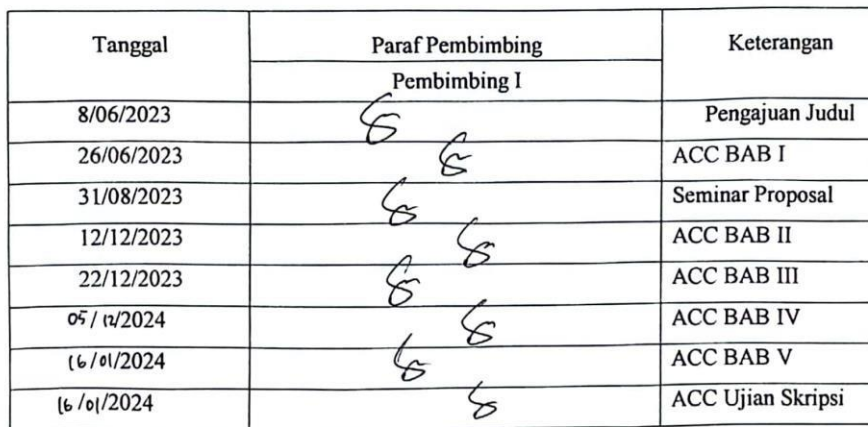 Tanggal Paraf Pembimbing Keterangan
Pembimbing I
8/06/2023 Pengajuan Judul
26/06/2023 ACC BAB I
31/08/2023 Seminar Proposal
12/12/2023 ACC BAB II
22/12/2023 ACC BAB III
05/12/2024 ACC BAB IV
16/01/2024 ACC BAB V
16/01/2024 ACC Ujian Skripsi